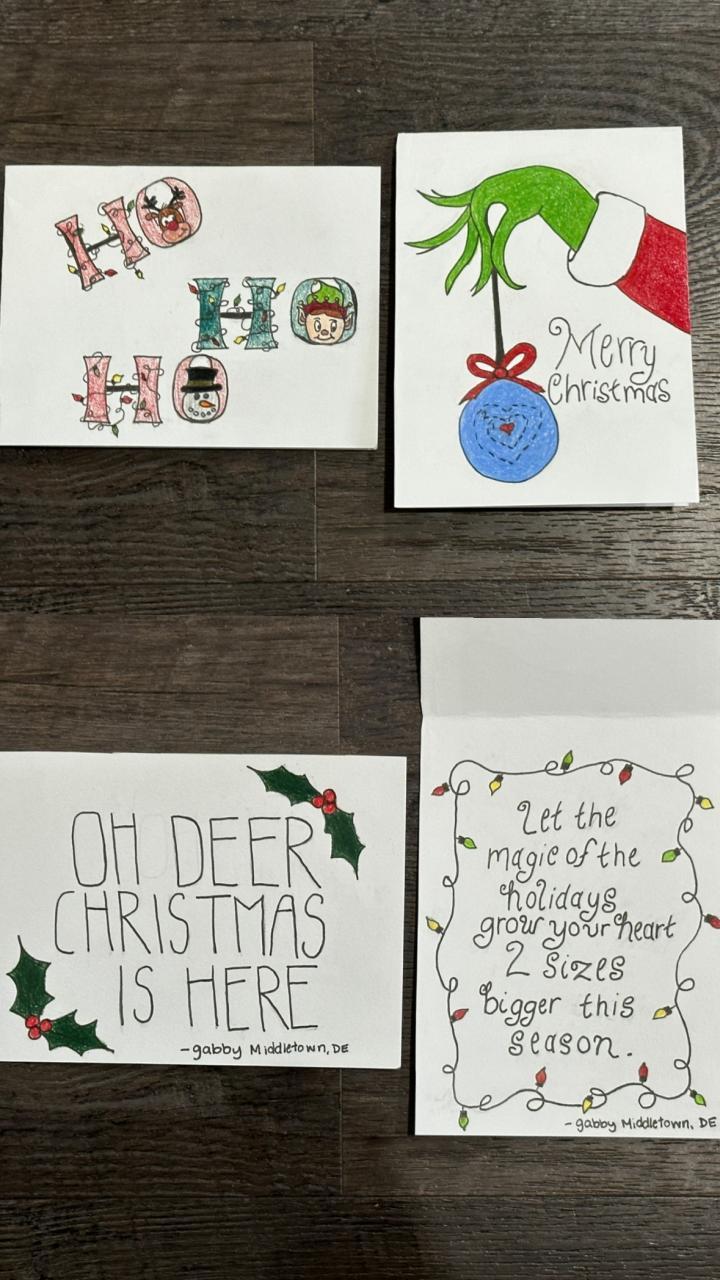 HO
HO
HO
Merry
Christmas
OH DEER
CHRISTMAS
IS HERE
-gabby Middletown, DE
Let the
magic of the
holidays
grow your heart
2 sizes
bigger this
season.
-gabby Middletown, DE